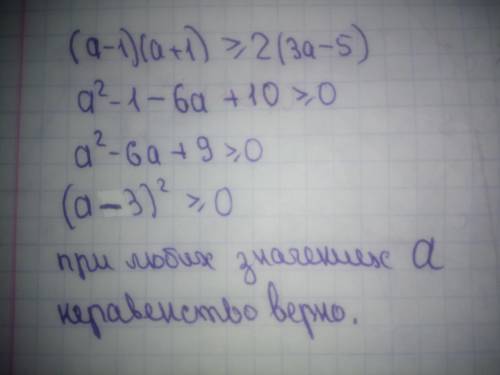 (a-1)(a+1) ⩾ 2(3a-5)
a²-1-6a+10 ⩾ 0
a²-6a+9 ⩾ 0
(a-3)² ⩾ 0
при любих значениях a
неравенство верно.